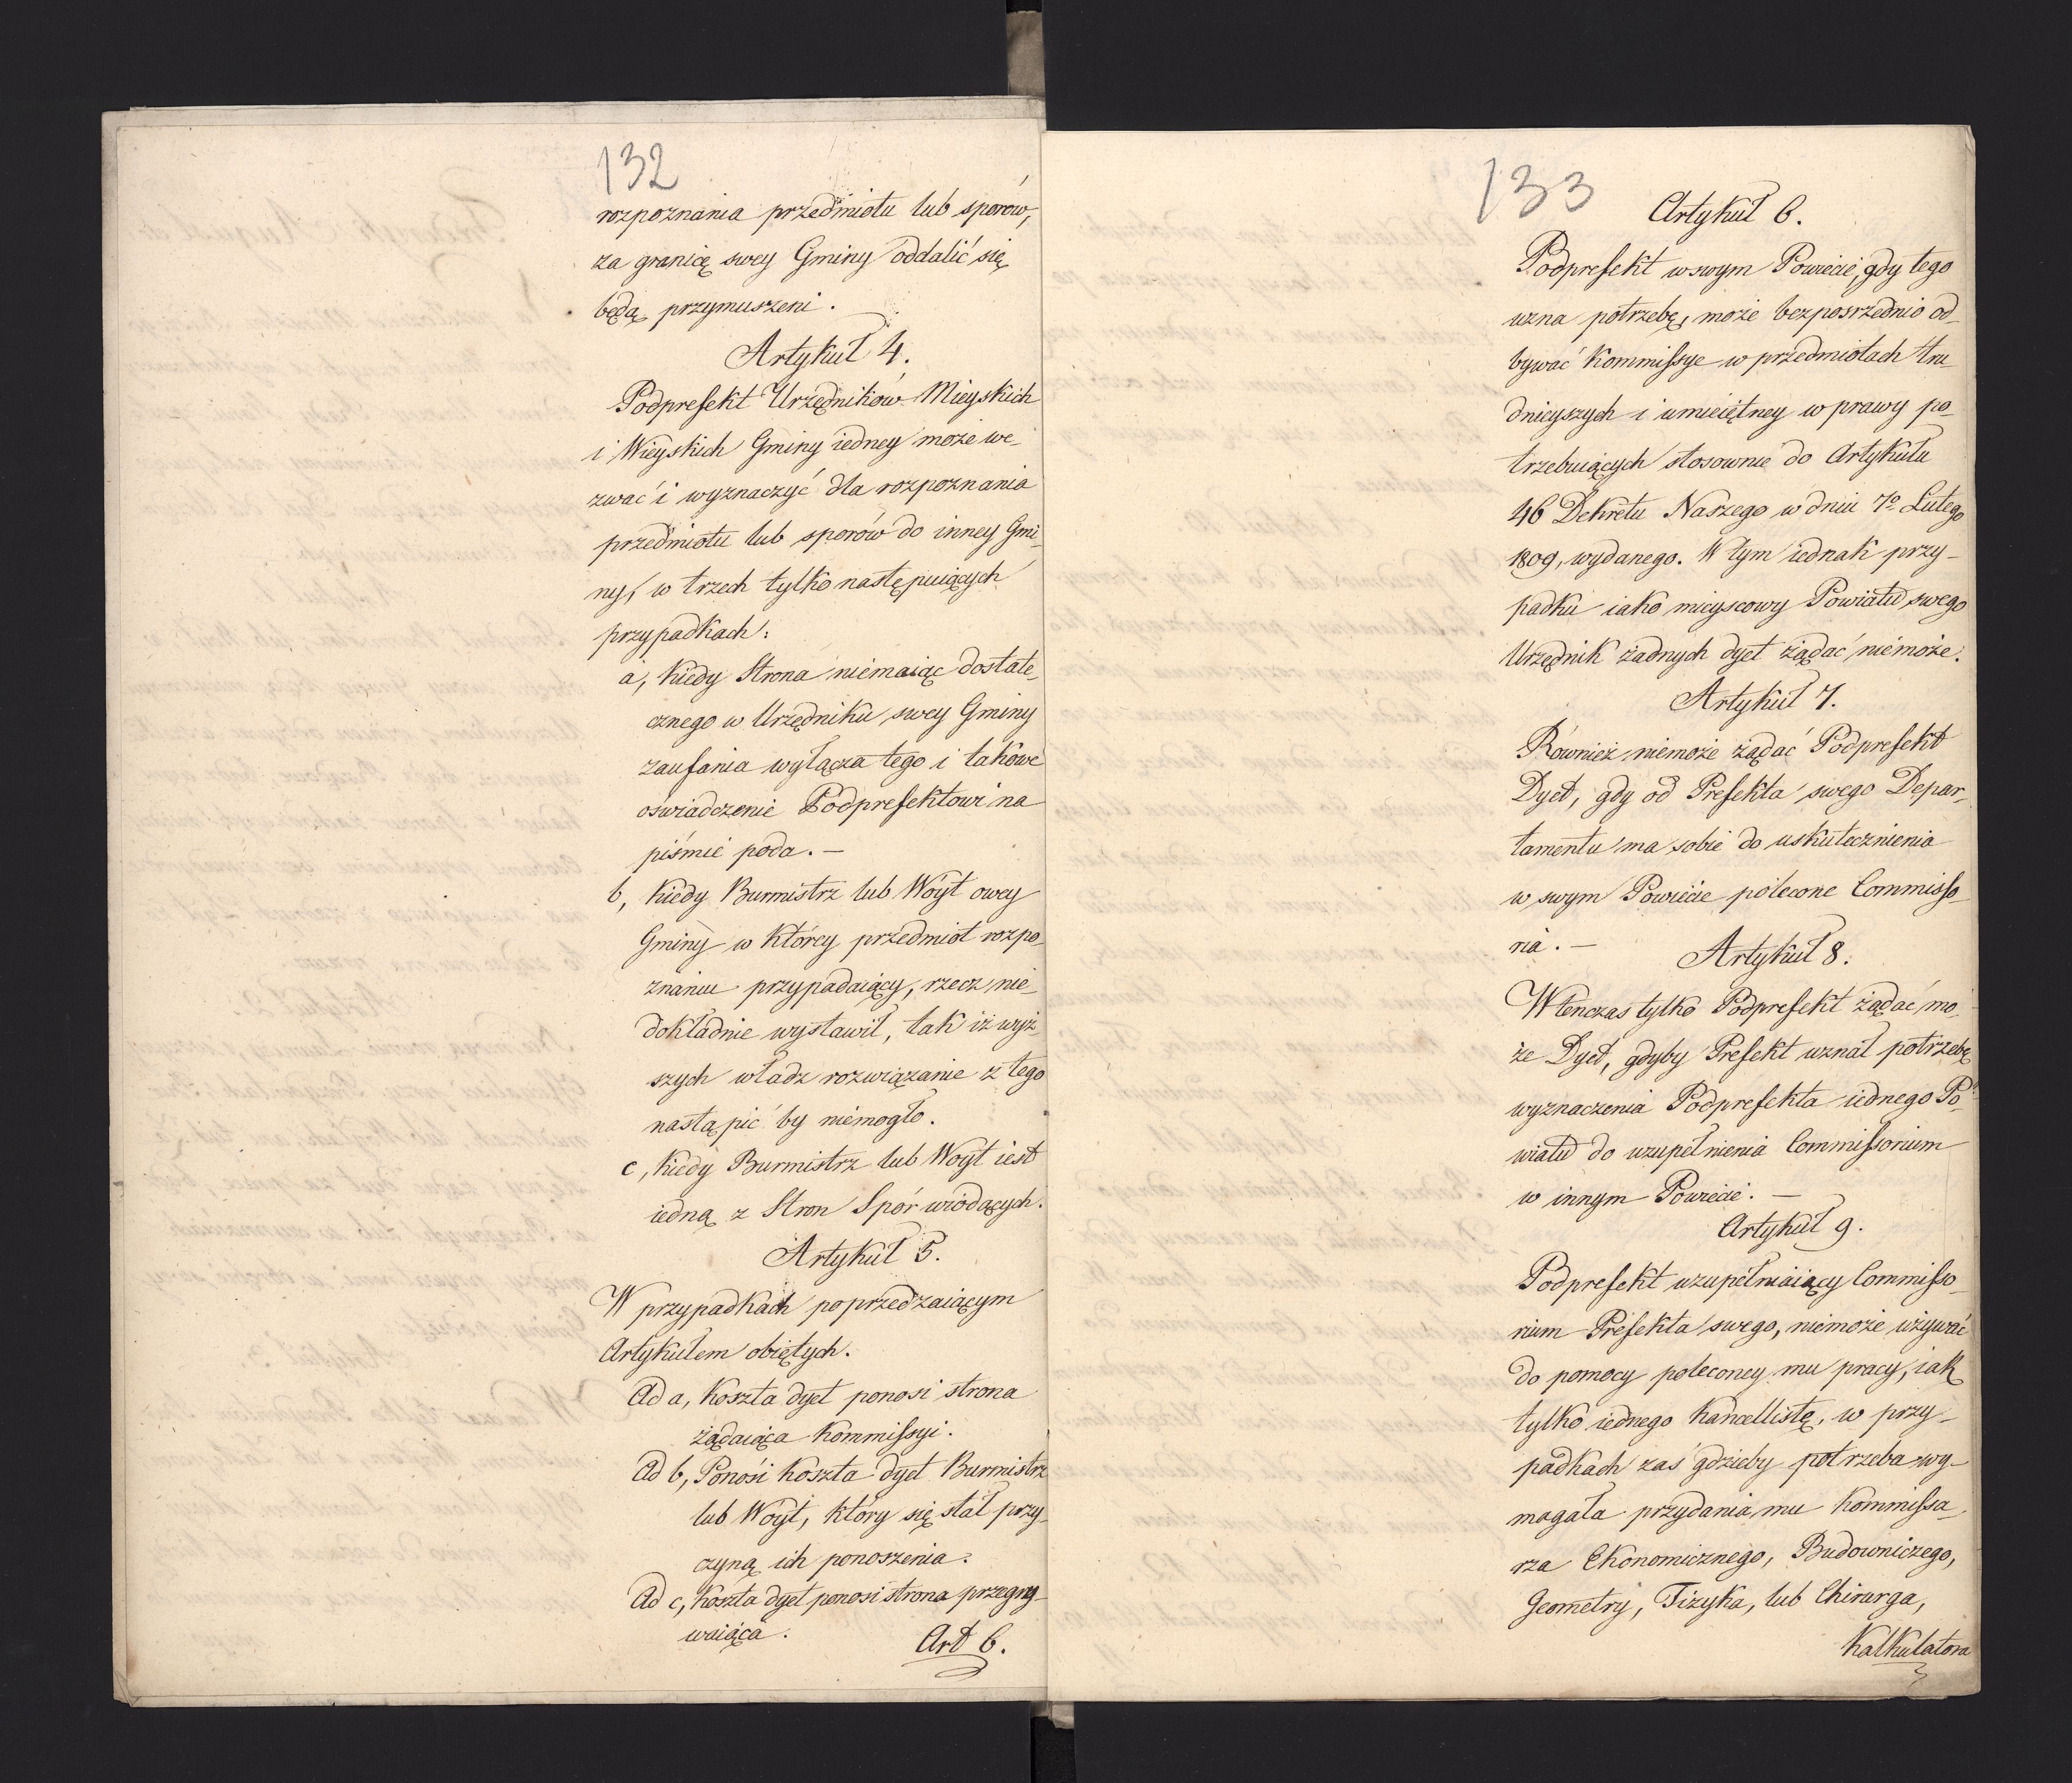 132
rozpoznania przedmiotu lub sporów,
za granicę swey Gminy oddalić się
będą przymuszeni.
Artykuł 4.
Podprefekt Urzędników Mieyskich
i Wieyskich Gminy iedney może we-
zwać i wyznaczyć dla rozpoznania
przedmiotu lub sporów do inney Gmi-
ny, w trzech tylko następuiących
przypadkach:
a, kiedy Strona niemaiąc dostate-
cznego w Urzędniku swey Gminy
zaufania wyłącza tego i takowe
oświadczenie Podprefektowi na
piśmie poda. —
b, kiedy Burmistrz lub Woyt owey
Gminy w którey przedmiot rozpo-
znaniu przypadaiący, rzecz nie-
dokładnie wystawił, tak iż wyż-
szych władz rozwiązanie z tego
nastąpić by niemogło.
c, kiedy Burmistrz lub Woyt iest
iedną z Stron Spór wiodących.
Artykuł 5.
W przypadkach poprzedzaiącym
Artykułem obiętych.
Ad a, koszta dyet ponosi strona
żądaiąca kommissyi.
Ad b, Ponosi koszta dyet Burmistrz
lub Woyt, który się stał przy-
czyną ich ponoszenia.
Ad c, koszta dyet ponosi strona przegry-
waiąca.
Art 6.
133
Artykuł 6.
Podprefekt w swym Powiecie, gdy tego
uzna potrzebę, może bezposrzednio od-
bywać kommissye w przedmiotach tru-
dnieyszych i umieiętney wprawy po-
trzebuiących stosownie do Artykułu
46 Dekretu Naszego w dniu 7º Lutego
1809, wydanego. W tym iednak przy-
padku iako mieyscowy Powiatu swego
Urzędnik żadnych dyet żądać niemoże.
Artykuł 7.
Również niemoże żądać Podprefekt
Dyet, gdy od Prefekta swego Depar-
tamentu ma sobie do uskutecznienia
w swym Powiecie polecone Commisso-
ria. —
Artykuł 8.
Wtenczas tylko Podprefekt żądać mo-
że Dyet, gdyby Prefekt uznał potrzebę
wyznaczenia Podprefekta iednego Po-
wiatu do uzupełnienia Commissorium
w innym Powiecie. —
Artykuł 9.
Podprefekt uzupełniaiący Commisso-
rium Prefekta swego, niemoże używać
do pomocy poleconey mu pracy, iak
tylko iednego kancellistę, w przy-
padkach zaś gdzieby potrzeba wy-
magała przydania mu kommissa-
rza Ekonomicznego, Budowniczego,
Geometry, Fizyka, lub Chirurga,
Kalkulatora